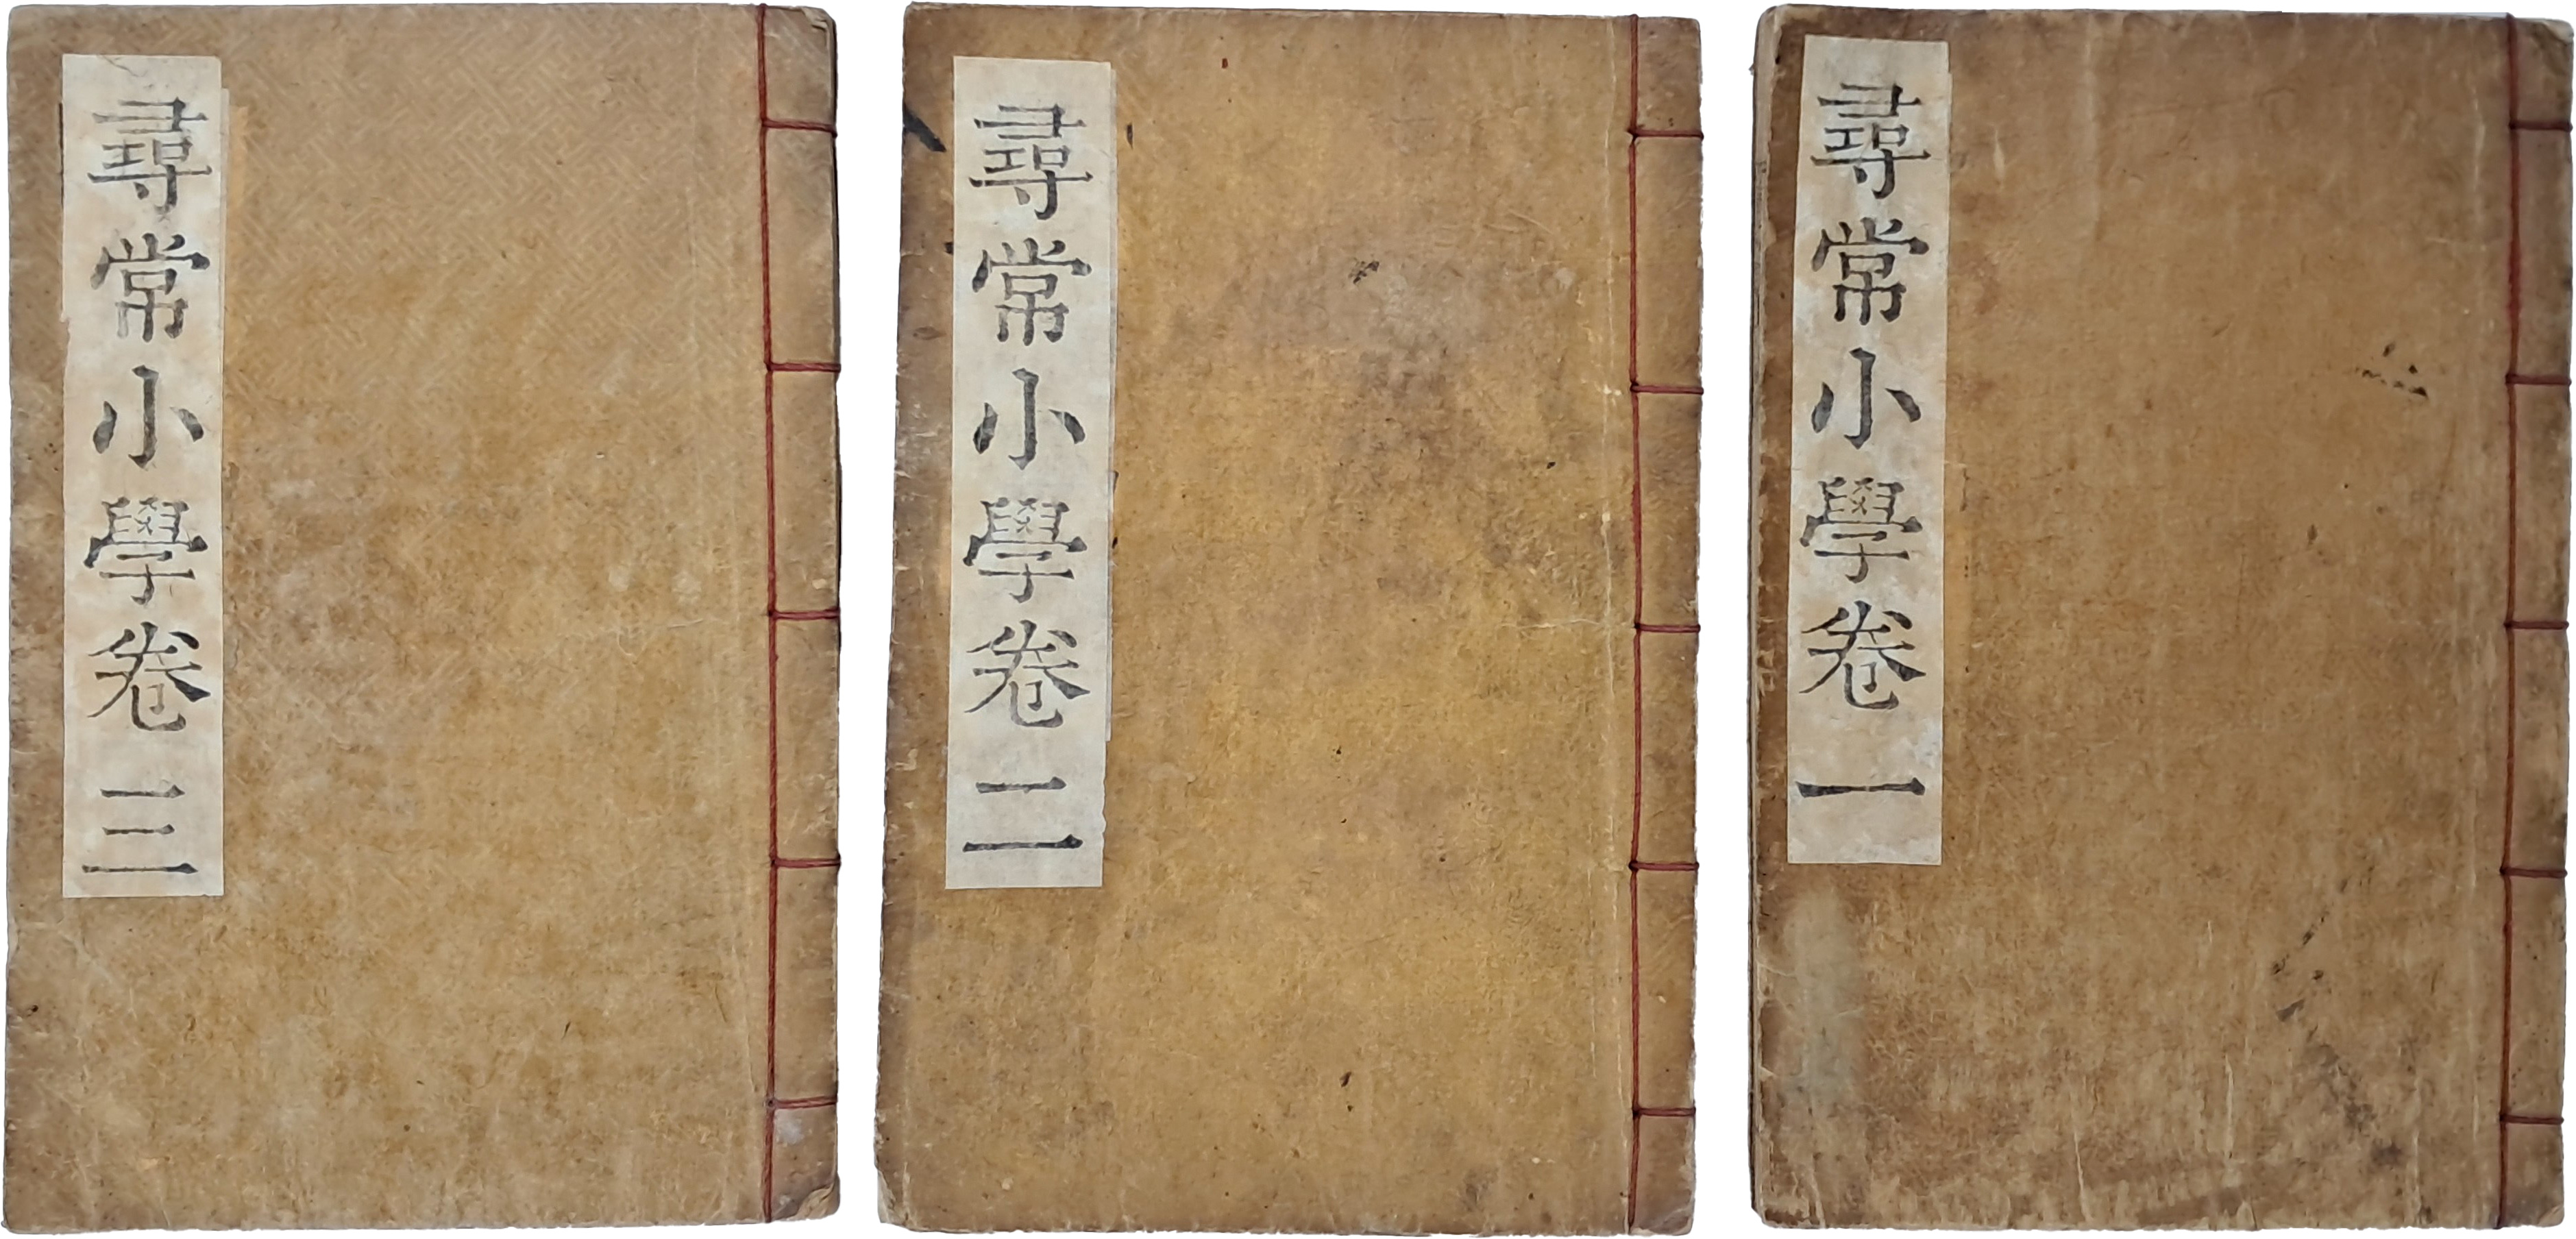 尋常小學卷一
尋常小學卷二
尋常小學卷三